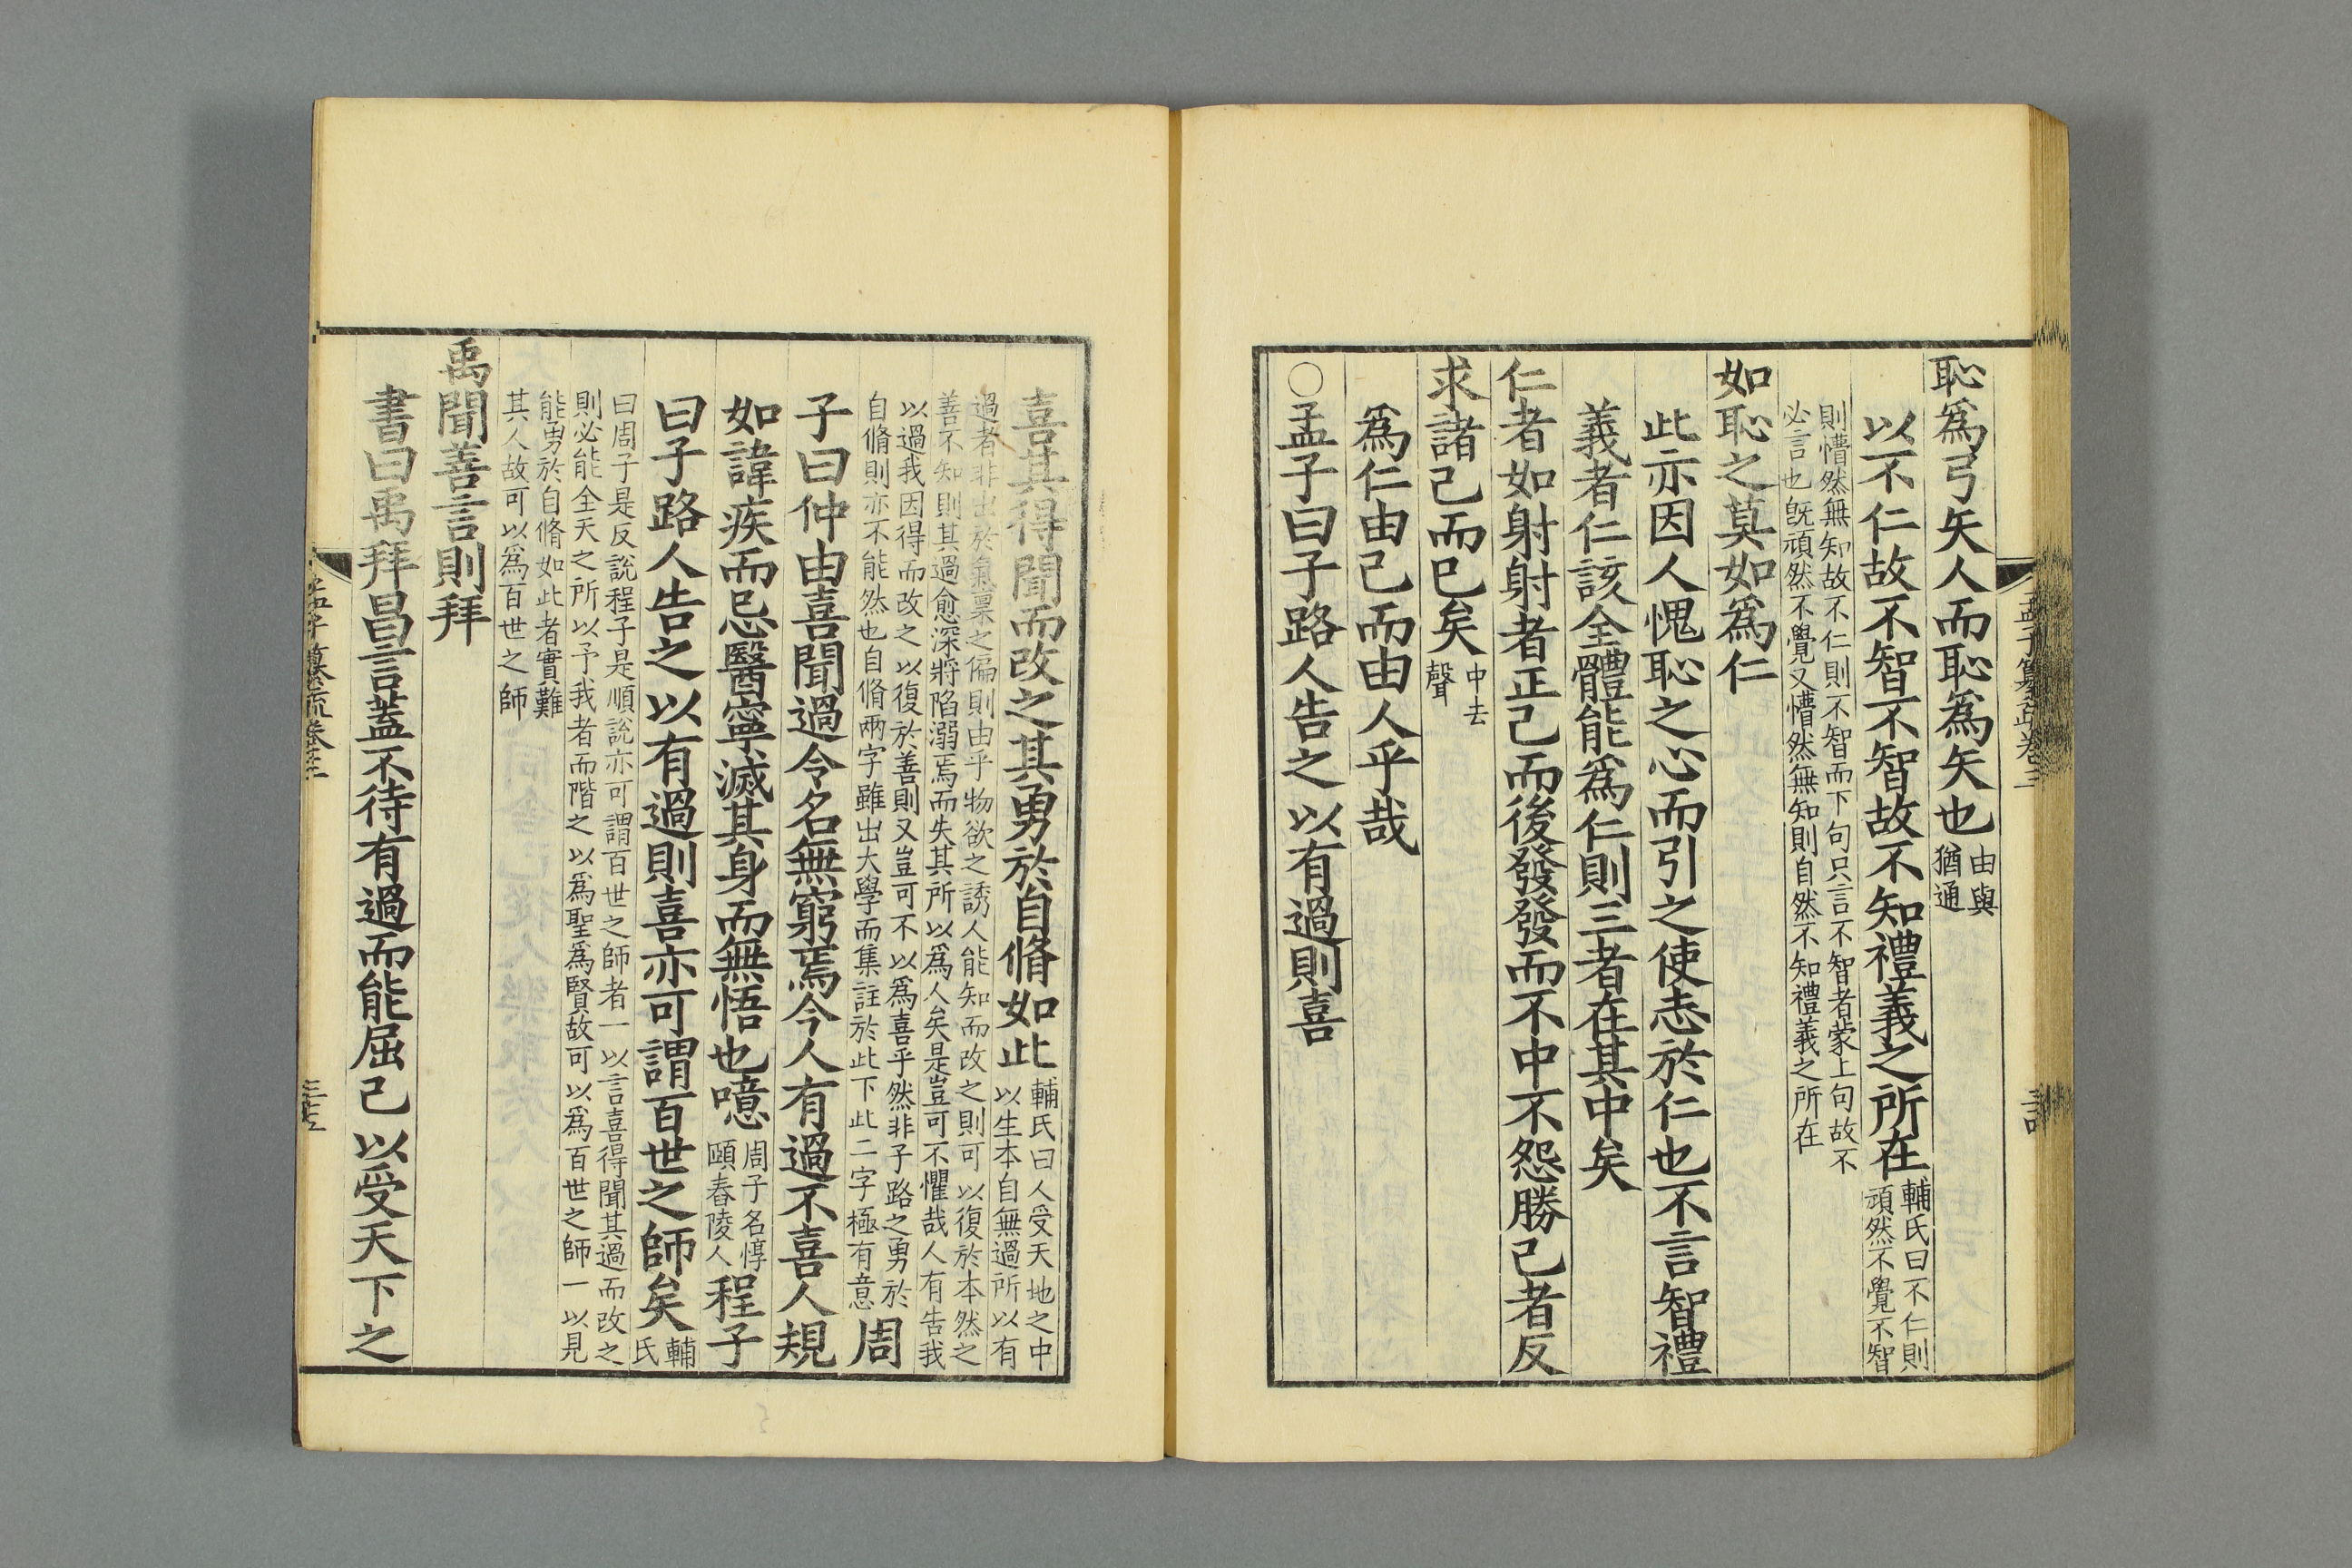 恥爲弓矢人而恥爲矢也由與猶通
以不仁故不智不智故不知禮義之所在輔氏曰不仁則頑然不覺不智
則懵然無知故不仁則不智而下句只言不智者蒙上句故不
必言也旣頑然不覺又懵然無知則自然不知禮義之所在
如恥之莫如爲仁
此亦因人愧恥之心而引之使志於仁也不言智禮
義者仁該全體能爲仁則三者在其中矣
仁者如射射者正己而後發發而不中不怨勝己者反
求諸己而已矣中去聲
爲仁由己而由人乎哉
○孟子曰子路人告之以有過則喜
喜其得聞而改之其勇於自脩如此輔氏曰人受天地之中以生本自無過所以有
過者非出於氣稟之偏則由乎物欲之誘人能知而改之則可以復於本然之
善不知則其過愈深將陷溺焉而失其所以爲人矣是豈可不懼哉人有告我
以過我因得而改之以復於善則又豈可不以爲喜乎然非子路之勇於
自脩則亦不能然也自脩兩字雖出大學而集註於此下此二字極有意周
子曰仲由喜聞過令名無窮焉今人有過不喜人規
如諱疾而忌醫寧滅其身而無悟也噫周子名惇頤舂陵人程子
曰子路人告之以有過則喜亦可謂百世之師矣輔氏
曰周子是反說程子是順說亦可謂百世之師者一以言喜得聞其過而改之
則必能全天之所以予我者而階之以爲聖爲賢故可以爲百世之師一以見
能勇於自脩如此者實難
其人故可以爲百世之師
禹聞善言則拜
書曰禹拜昌言蓋不待有過而能屈己以受天下之
孟子纂疏卷三